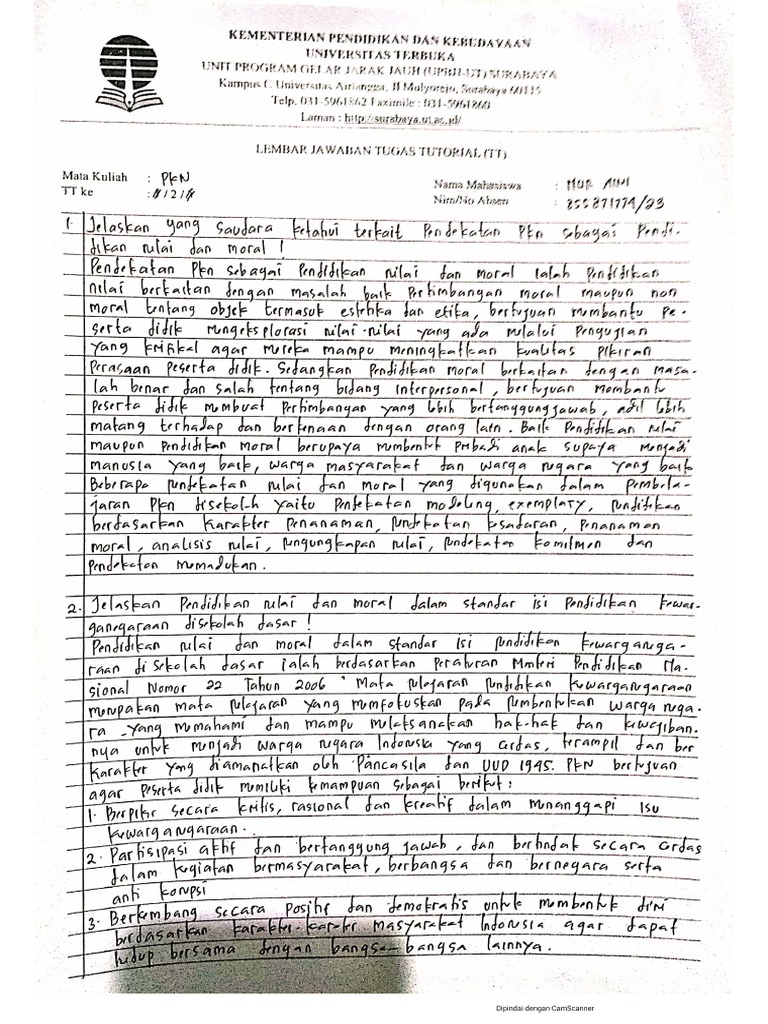 KEMENTERIAN PENDIDIKAN DAN KEBUDAYAAN
UNIVERSITAS TERBUKA
UNIT PROGRAM BELAJAR JARAK JAUH (UPBJJ-UT) SURABAYA
Kampus C Universitas Airlangga, Jl Mulyorejo, Surabaya 60115
Telp. 031-5961862 Faximile : 031-5961860
Laman : http://surabaya.ut.ac.id/
LEMBAR JAWABAN TUGAS TUTORIAL (TT)
Mata Kuliah : PKN
TT ke : 1/2/3
Nama Mahasiswa : NUR AINI
Nim/No Absen : 855871774/23
1. Jelaskan yang saudara ketahui terkait Pendekatan PKn sebagai Pendi-
dikan nilai dan moral !
Pendekatan PKn sebagai Pendidikan nilai dan moral ialah Pendidikan
nilai berkaitan dengan masalah baik Pertimbangan moral maupun non
moral tentang objek termasuk estetika dan etika, bertujuan membantu pe-
serta didik mengeksplorasi nilai-nilai yang ada melalui Pengujian
yang kritikel agar mereka mampu meningkatkan kualitas pikiran
Perasaan Peserta didik. Sedangkan Pendidikan moral berkaitan dengan masa-
lah benar dan salah tentang bidang interpersonal, bertujuan membantu
peserta didik membuat Pertimbangan yang lebih bertanggungjawab, adil lebih
matang terhadap dan berkenaan dengan orang lain. Baik Pendidikan nilai
maupun Pendidikan moral berupaya membentuk pribadi anak supaya menjadi
manusia yang baik, warga masyarakat dan warga negara yang baik
Beberapa pendekatan nilai dan moral yang digunakan dalam Pembela-
jaran PKn disekolah yaitu Pendekatan modeling, exemplary, Pendidikan
berdasarkan Karakter Penanaman, Pendekatan kesadaran, Penanaman
moral, analisis nilai, pengungkapan nilai, pendekatan komitmen dan
Pendekatan memadukan.
2. Jelaskan Pendidikan nilai dan moral dalam standar isi Pendidikan Kewar-
ganegaraan disekolah dasar !
Pendidikan nilai dan moral dalam standar isi pendidikan kewarganega-
raan di Sekolah dasar ialah berdasarkan Peraturan Menteri Pendidikan Na-
sional Nomor 22 Tahun 2006 "Mata pelajaran Pendidikan Kewarganegaraan
merupakan mata pelajaran yang memfokuskan pada pembentukan warga nega-
ra yang memahami dan mampu melaksanakan hak-hak dan kewajiban-
nya untuk menjadi warga negara Indonesia yang cerdas, terampil dan ber
karakter yang diamanatkan oleh Pancasila dan UUD 1945. PKn bertujuan
agar Peserta didik memiliki kemampuan sebagai berikut :
1. Berpikir secara kritis, rasional dan kreatif dalam menanggapi isu
kewarganegaraan.
2. Partisipasi aktif dan bertanggung jawab, dan bertindak secara cerdas
dalam kegiatan bermasyarakat, berbangsa dan bernegara serta
anti korupsi
3. Berkembang secara positif dan demokratis untuk membentuk diri
berdasarkan karakter-karakter masyarakat Indonesia agar dapat
hidup bersama dengan bangsa-bangsa lainnya.
Dipindai dengan CamScanner